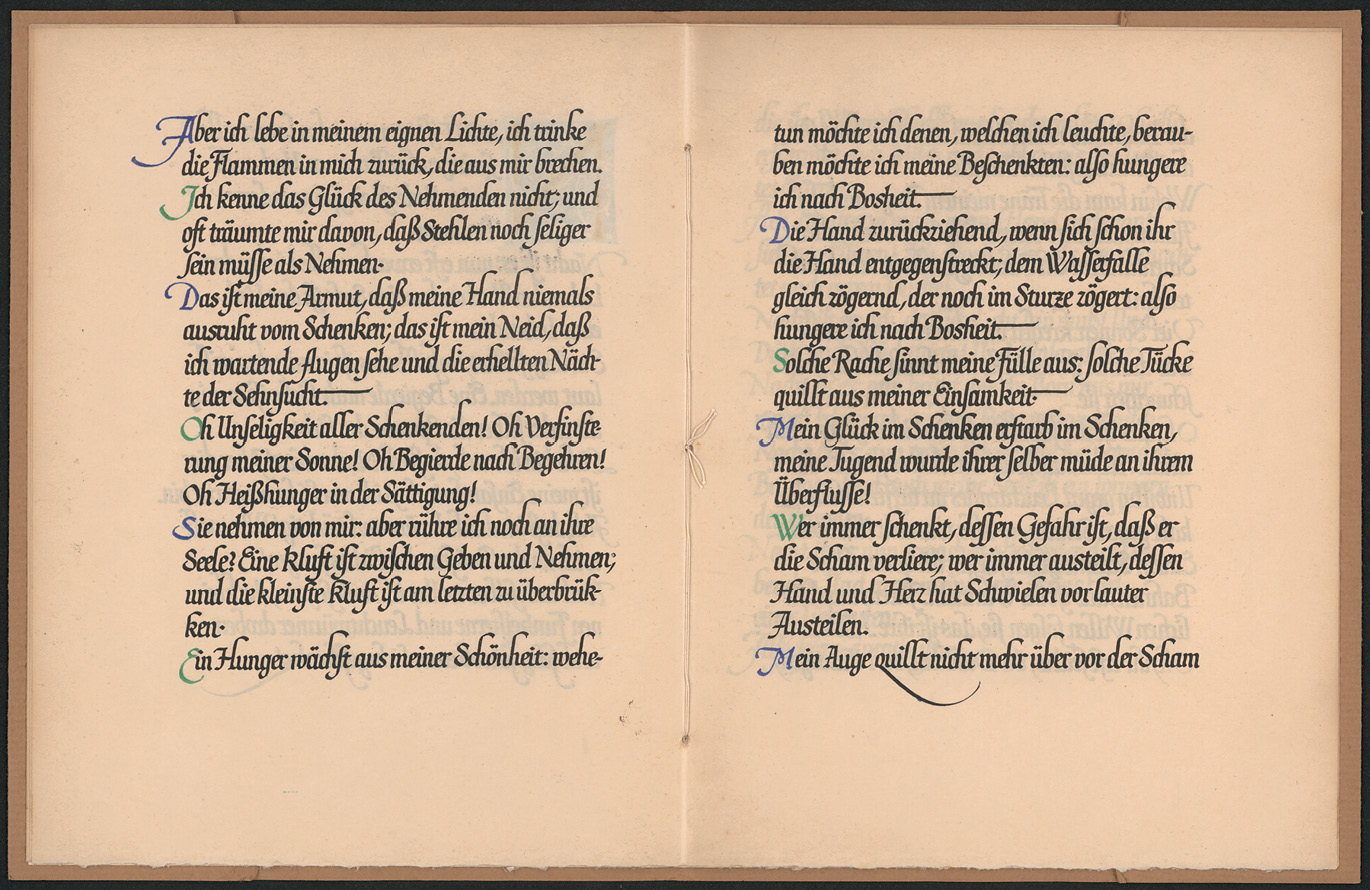 Aber ich lebe in meinem eignen Lichte, ich trinke
die Flammen in mich zurück, die aus mir brechen.
Ich kenne das Glück des Nehmenden nicht; und
oft träumte mir davon, daß Stehlen noch seliger
sein müsse als Nehmen.
Das ist meine Armut, daß meine Hand niemals
ausruht vom Schenken; das ist mein Neid, daß
ich wartende Augen sehe und die erhellten Näch-
te der Sehnsucht. —
Oh Unseligkeit aller Schenkenden! Oh Verfinste-
rung meiner Sonne! Oh Begierde nach Begehren!
Oh Heißhunger in der Sättigung!
Sie nehmen von mir: aber rühre ich noch an ihre
Seele? Eine Kluft ist zwischen Geben und Nehmen;
und die kleinste Kluft ist am letzten zu überbrük-
ken.
Ein Hunger wächst aus meiner Schönheit: wehe-
tun möchte ich denen, welchen ich leuchte, berau-
ben möchte ich meine Beschenkten: also hungere
ich nach Bosheit. —
Die Hand zurückziehend, wenn sich schon ihr
die Hand entgegenstreckt; dem Wasserfalle
gleich zögernd, der noch im Sturze zögert: also
hungere ich nach Bosheit. —
Solche Rache sinnt meine Fülle aus: solche Tücke
quillt aus meiner Einsamkeit. —
Mein Glück im Schenken erstarb im Schenken,
meine Tugend wurde ihrer selber müde an ihrem
Überflusse!
Wer immer schenkt, dessen Gefahr ist, daß er
die Scham verliere; wer immer austeilt, dessen
Hand und Herz hat Schwielen vor lauter
Austeilen.
Mein Auge quillt nicht mehr über vor der Scham